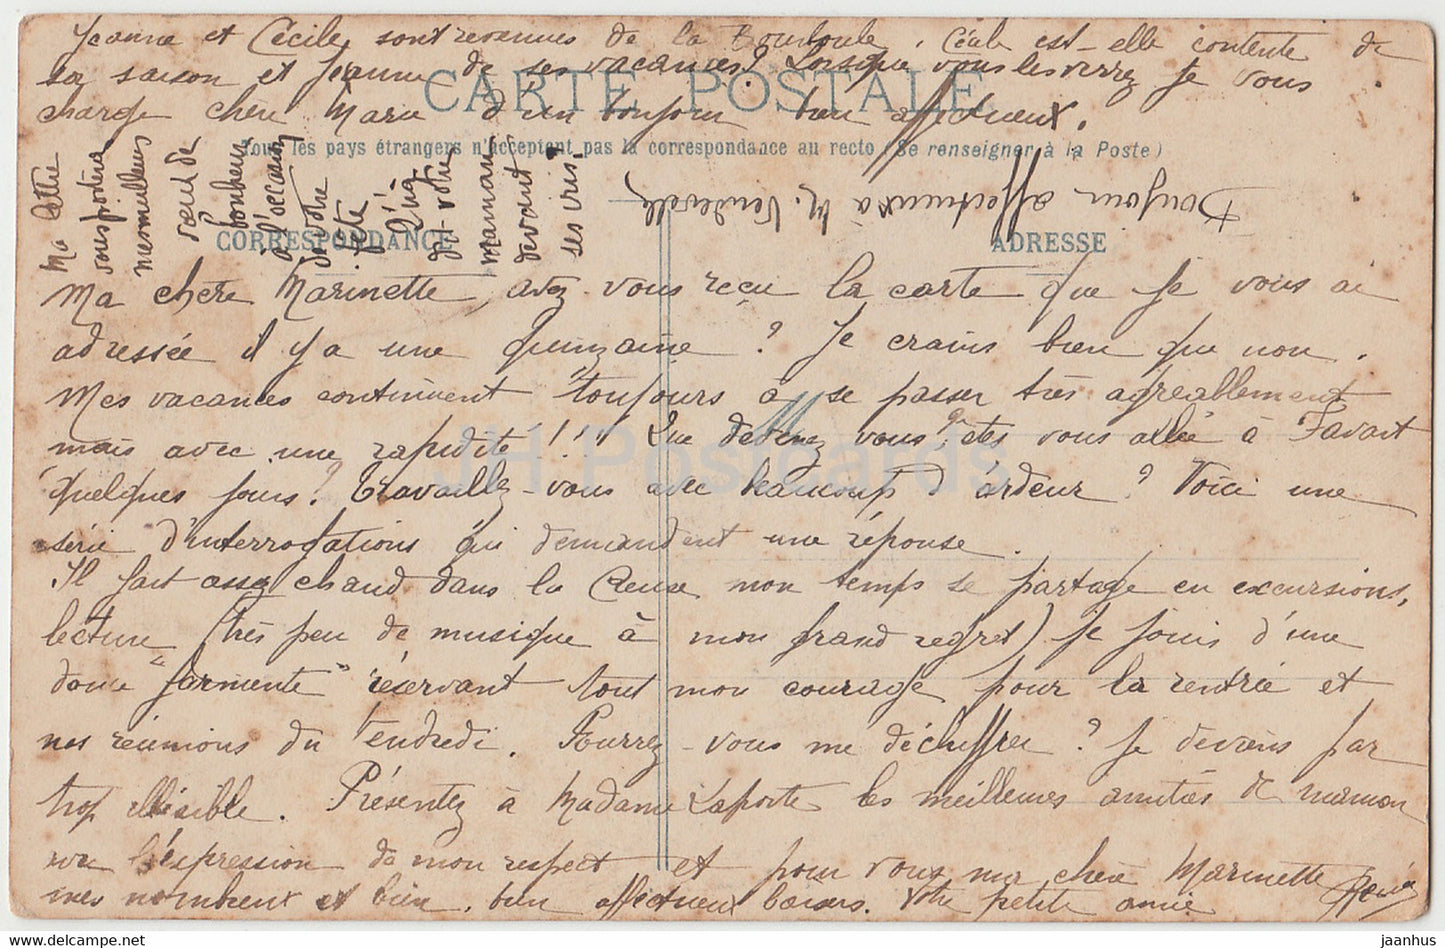 Jeanne et Cécile, sont revenues de la Bourboule, Cécile est-elle contente de
sa saison et Jeanne de ses vacances? Lorsque vous les verrez je vous
charge chère Marie d'un bonjour bien affectueux.
CARTE POSTALE
Tous les pays étrangers n'acceptent pas la correspondance au recto (Se renseigner à la Poste)
CORRESPONDANCE
ADRESSE
Ma lettre
vous portera
mes meilleurs
vœux de
bonheur
à l'occasion
de votre
fête
Qu'en
dit votre
maman
devant
ses
Bonjour affectueux à M. Vendeville
Ma chère Marinette, avez-vous reçu la carte que je vous ai
adressée il y a une quinzaine? Je crains bien que non.
Mes vacances continuent toujours à se passer très agréablement
mais avec une rapidité!!! Que devenez vous, êtes vous allée à Favart
quelques jours? Travaillez-vous avec beaucoup d'ardeur? Voici une
série d'interrogations qui demandent une réponse.
Il fait assez chaud dans la Creuse mon temps se partage en excursions,
lecture (très peu de musique à mon grand regret) je jouis d'une
douce "farmente" réservant tout mon courage pour la rentrée et
nos réunions du Vendredi. Pourrez-vous me déchiffrer? Je deviens par
trop illisible. Présentez à Madame Laporte les meilleures amitiés de maman
l'expression de mon respect et pour vous ma chère Marinette
mes nombreux et bien, bien affectueux baisers. Votre petite amie Renée
JH Postcards
www.delcampe.net
jaanhus